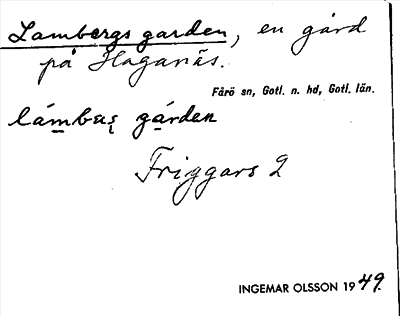 Lambergs garden, en gård
på Haganäs.
Fårö sn, Gotl. n. hd, Gotl. län.
gárden
Friggars 2
INGEMAR OLSSON 1949.